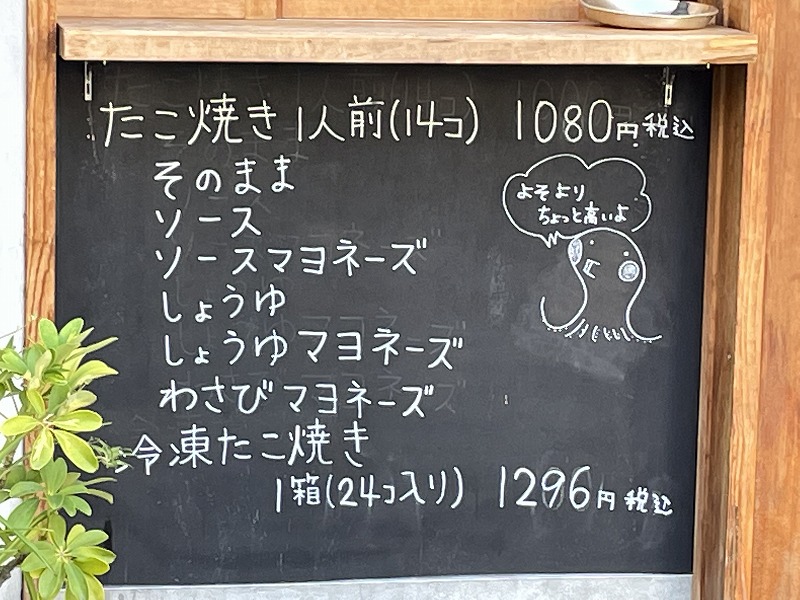 たこ焼き 1人前(14コ) 1080円 税込
そのまま
ソース
ソースマヨネーズ
しょうゆ
しょうゆマヨネーズ
わさびマヨネーズ
冷凍たこ焼き
1箱(24コ入り) 1296円 税込
よそより
ちょっと高いよ